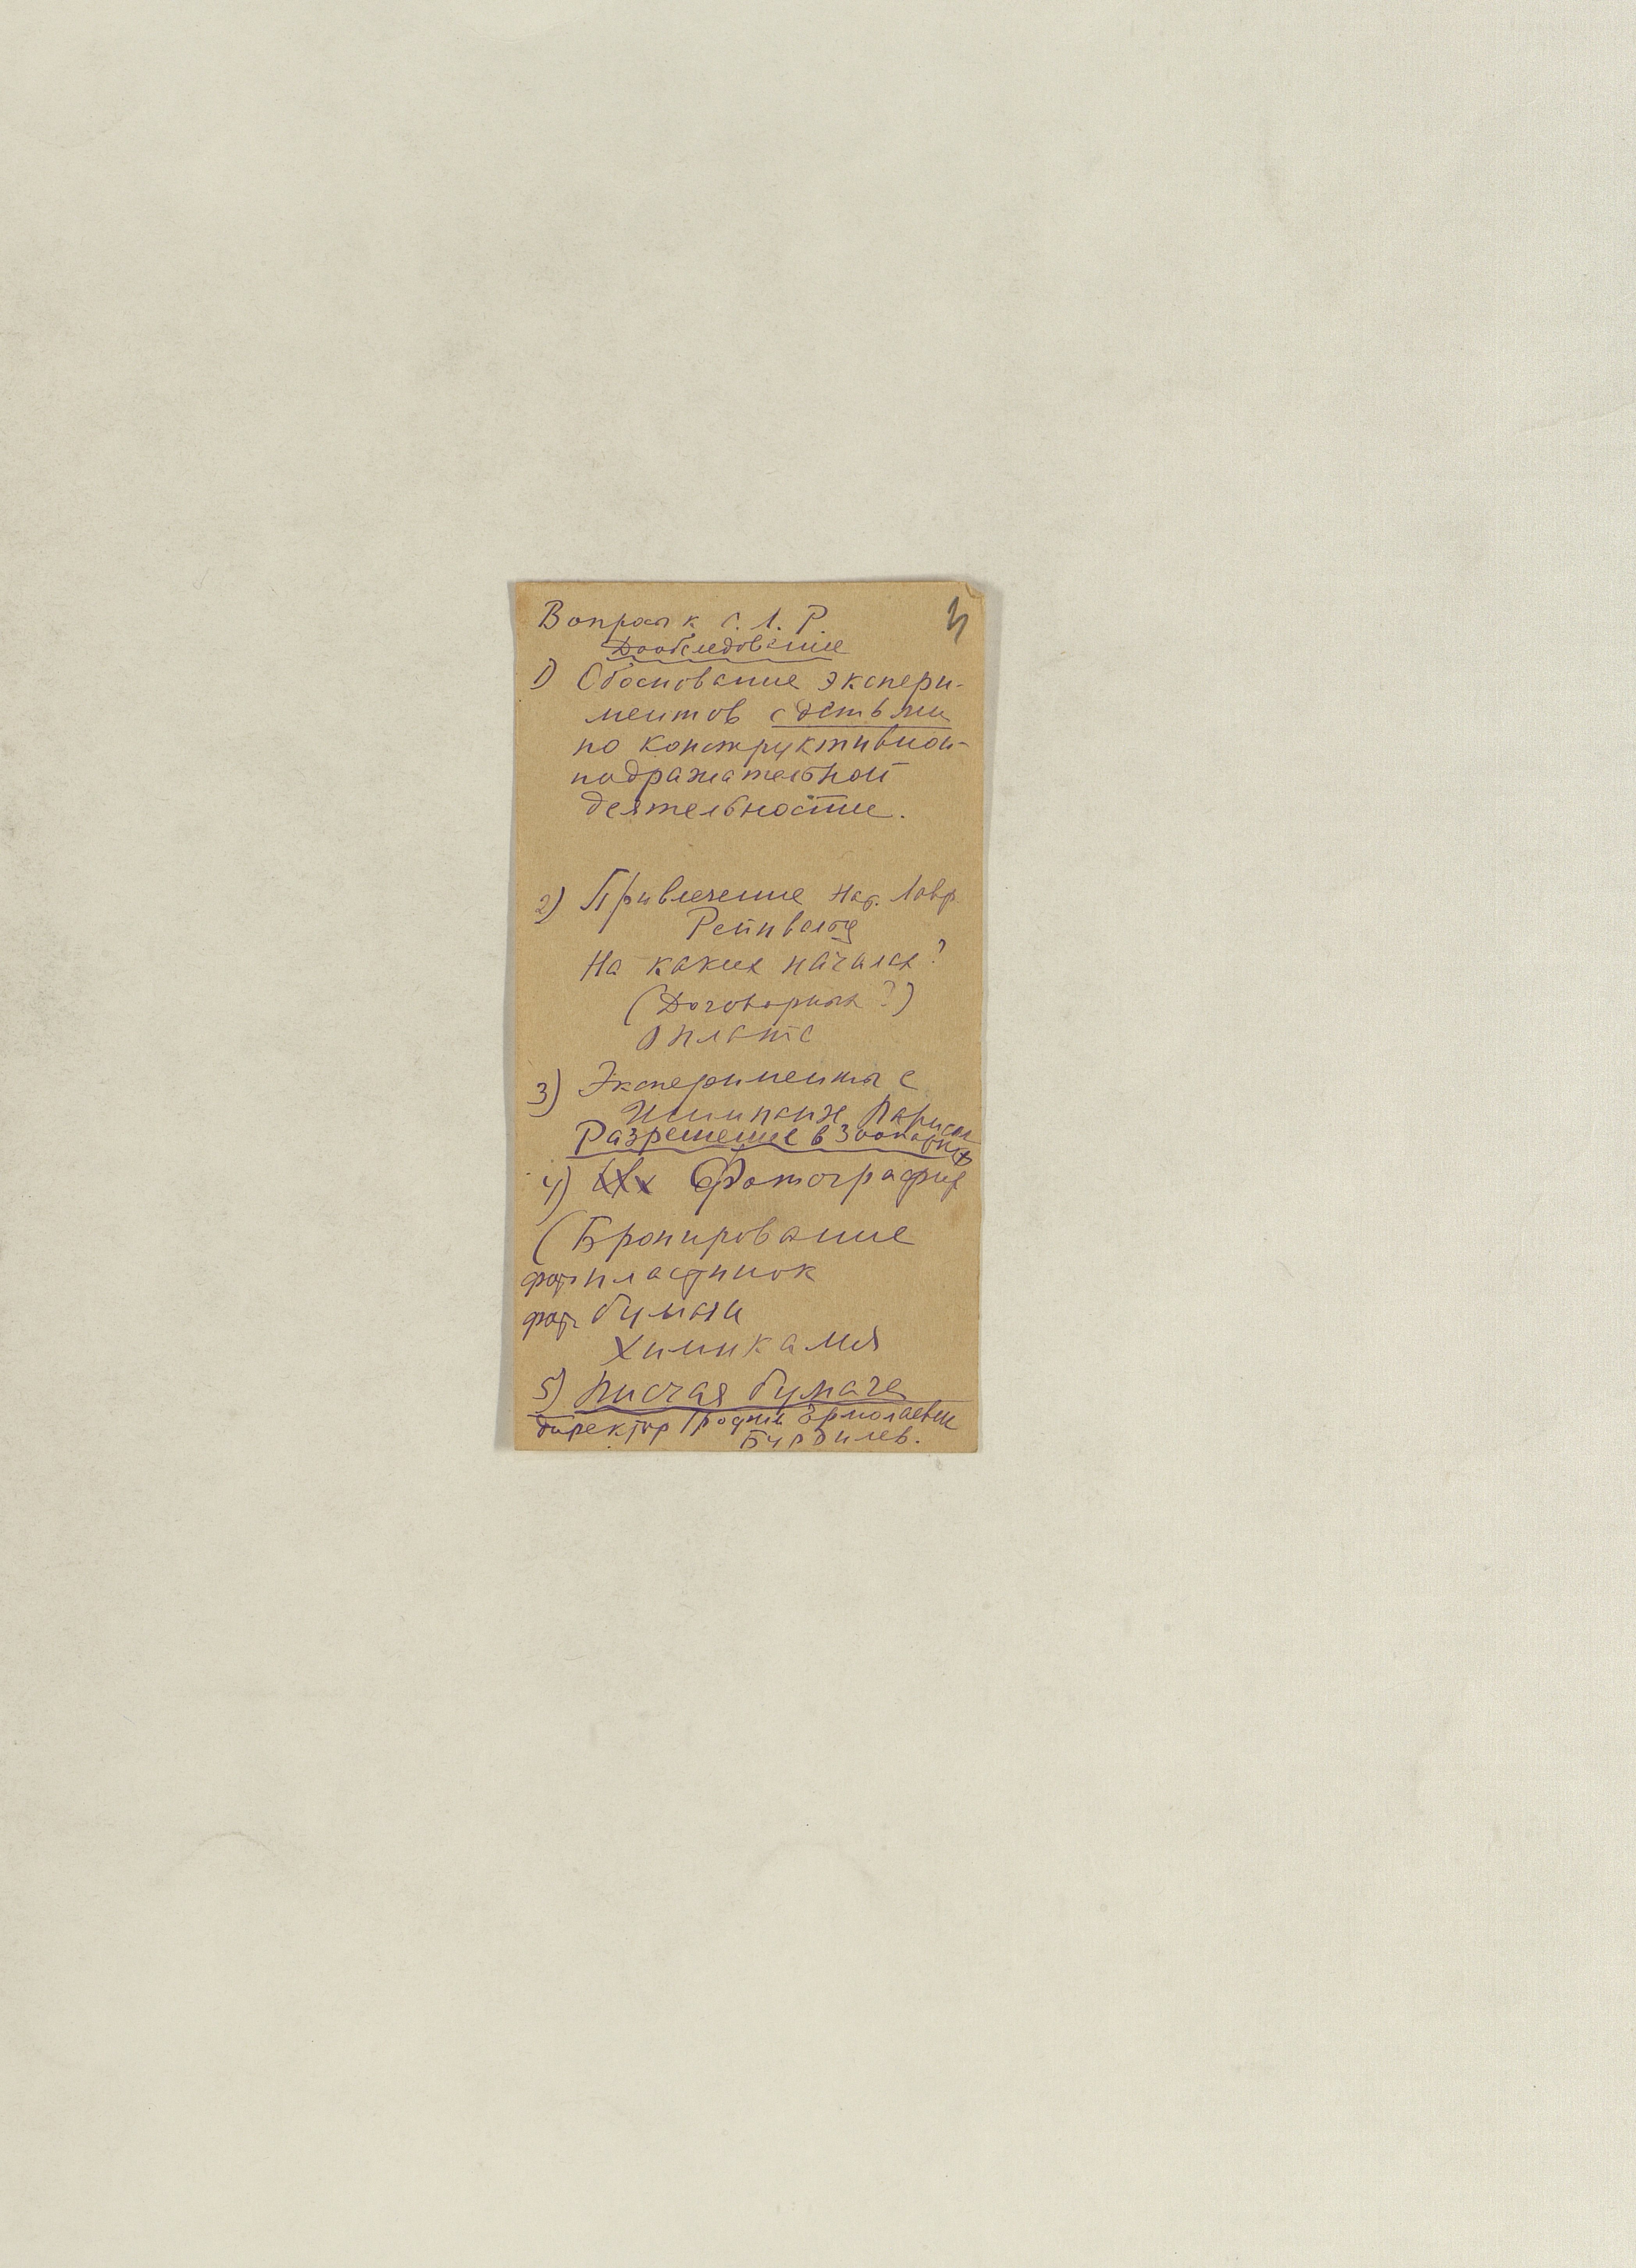 Вопросы к С. Л. Р.
Дообследование
1) Обоснование экспери-
ментов с детьми
по конструктивной-
подражательной
деятельностие.
2) Привлечение Нат. Лавр
Рейнвальд
На каких началах?
(Договорных?)
Оплата
3) Эксперименты с
Шимпанзе Парисом
Разрешение в Зоопарке
4) Фотография
(Бронирование
фот пластинок
фот. бумаги
Химикалия
5) Писчая бумага
директор Ермолаевич
Бурдилев.